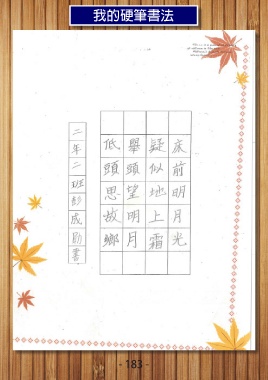 我的硬筆書法
床前明月光
疑似地上霜
舉頭望明月
低頭思故鄉
二年二班彭成勛書
- 183 -